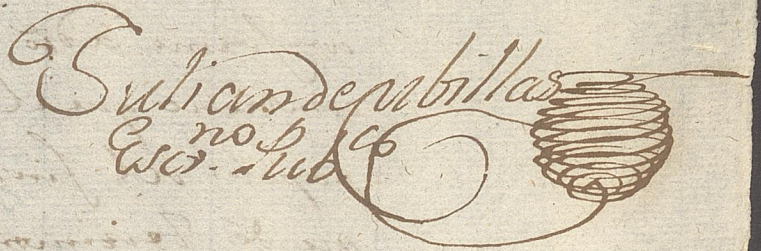 Julian de pubillas
Escrno. pubco